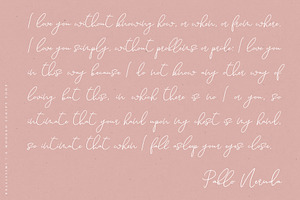 I love you without knowing how, or when, or from where.
I love you simply, without problems or pride: I love you
in this way because I do not know any other way of
loving but this, in which there is no I or you, so
intimate that your hand upon my chest is my hand,
so intimate that when I fall asleep your eyes close.
Pablo Neruda